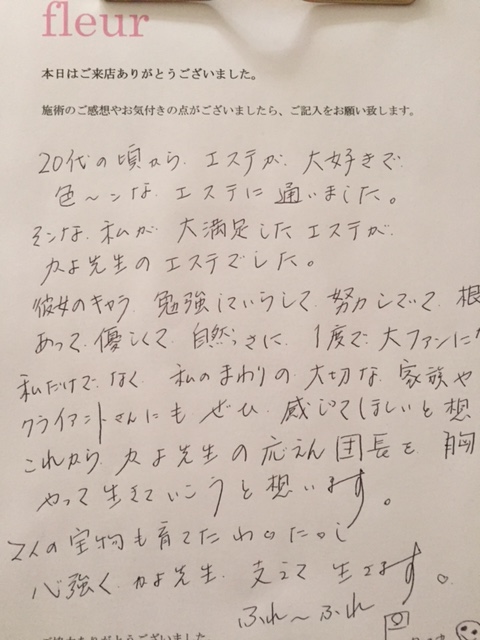 fleur
本日はご来店ありがとうございました。
施術のご感想やお気付きの点がございましたら、ご記入をお願い致します。
20代の頃から、エステが、大好きで
色〜ンな、エステに通いました。
そんな、私が、大満足したエステが
カよ先生のエステでした。
彼女のキャラ、勉強していらして、努力していて、根
あって、優しくて、自然っさに、1度で、大ファンに
私だけで、なく、私のまわりの、大切な、家族や
クライアントさんにも、ぜひ、感じてほしいと想
これから、カよ先生の応えん団長を、胸
やって生きていこうと想います。
2人の宝物も育てた
心強く、カよ先生、支えて、生きます。
ふれ〜ふれ